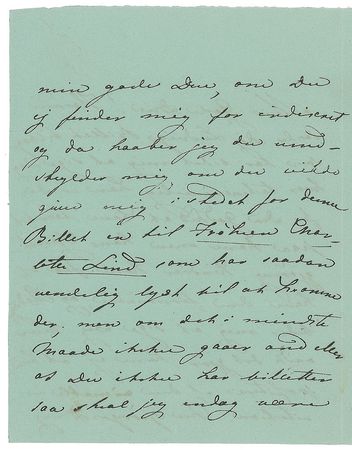 min gode Due, om Du
ej finder mig for indiscret
og da haaber jeg du und-
skylder mig, om du vilde
give mig i stedet for denne
Billet en til Frøken Char-
lotte Lind som har saadan
uendelig lyst til at komme
der, men om det i mindste
Maade ikke gaaer an eller
at Du ikke har billetter
saa skal jeg endog være